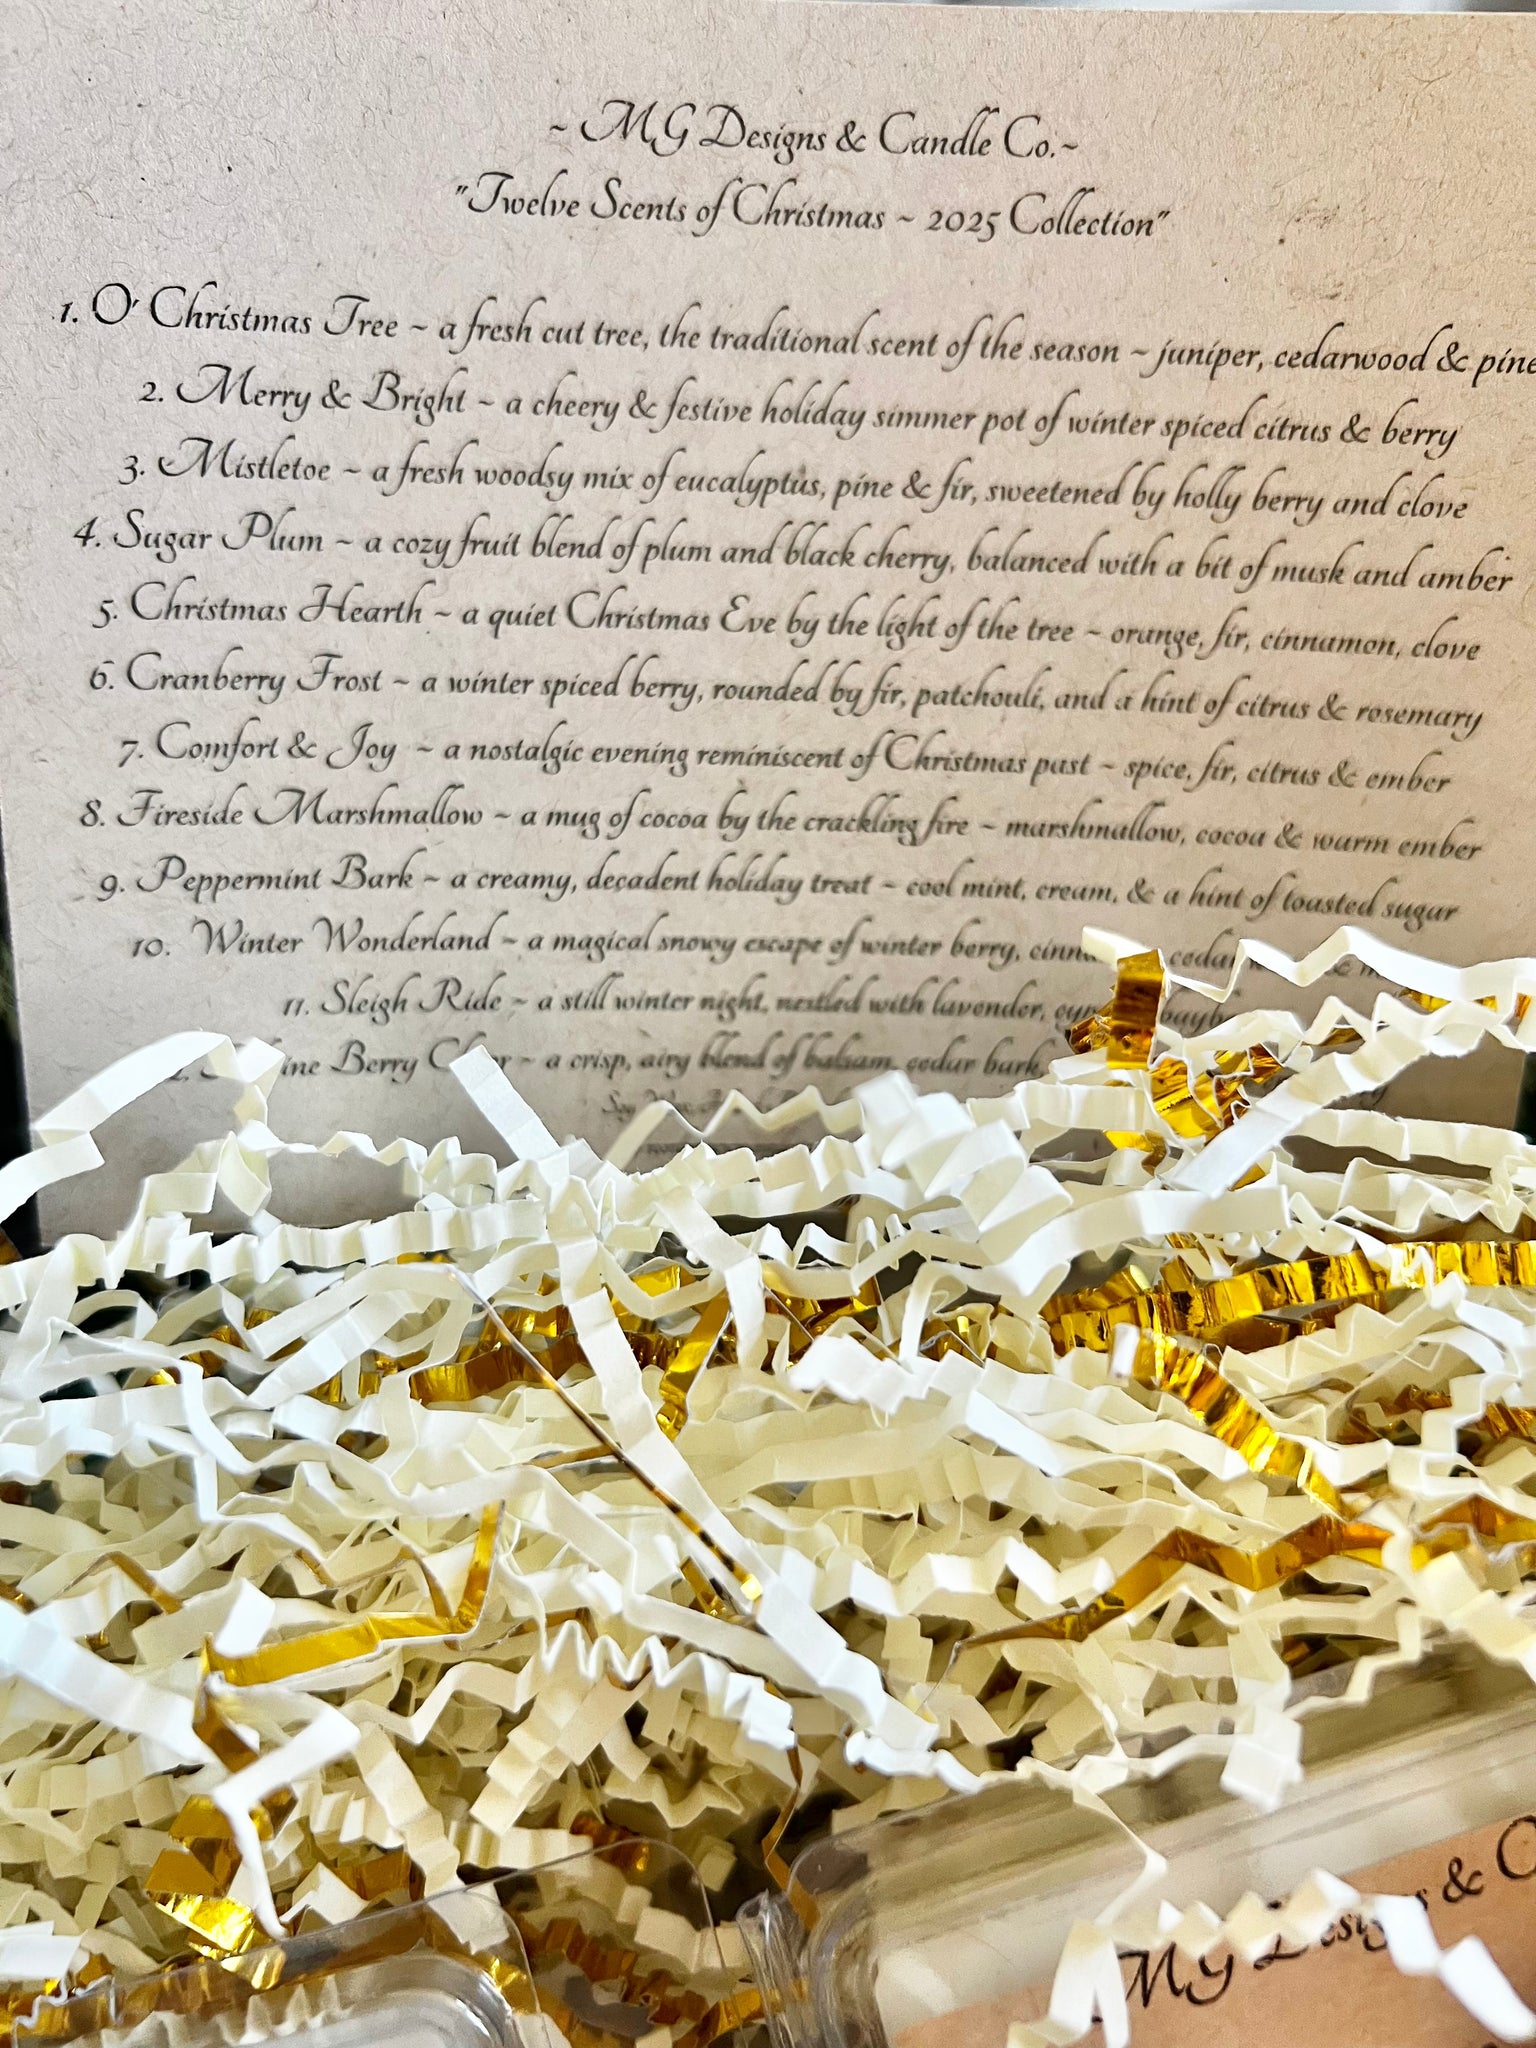 ~ MG Designs & Candle Co.~
"Twelve Scents of Christmas ~ 2025 Collection"
1. O' Christmas Tree ~ a fresh cut tree, the traditional scent of the season ~ juniper, cedarwood & pine
2. Merry & Bright ~ a cheery & festive holiday simmer pot of winter spiced citrus & berry
3. Mistletoe ~ a fresh woodsy mix of eucalyptus, pine & fir, sweetened by holly berry and clove
4. Sugar Plum ~ a cozy fruit blend of plum and black cherry, balanced with a bit of musk and amber
5. Christmas Hearth ~ a quiet Christmas Eve by the light of the tree ~ orange, fir, cinnamon, clove
6. Cranberry Frost ~ a winter spiced berry, rounded by fir, patchouli, and a hint of citrus & rosemary
7. Comfort & Joy ~ a nostalgic evening reminiscent of Christmas past ~ spice, fir, citrus & ember
8. Fireside Marshmallow ~ a mug of cocoa by the crackling fire ~ marshmallow, cocoa & warm ember
9. Peppermint Bark ~ a creamy, decadent holiday treat ~ cool mint, cream, & a hint of toasted sugar
10. Winter Wonderland ~ a magical snowy escape of winter berry,
11. Sleigh Ride ~ a still winter night, nestled with lavender,
Berry ~ a crisp, airy blend of balsam, cedar bark,
MG Designs &